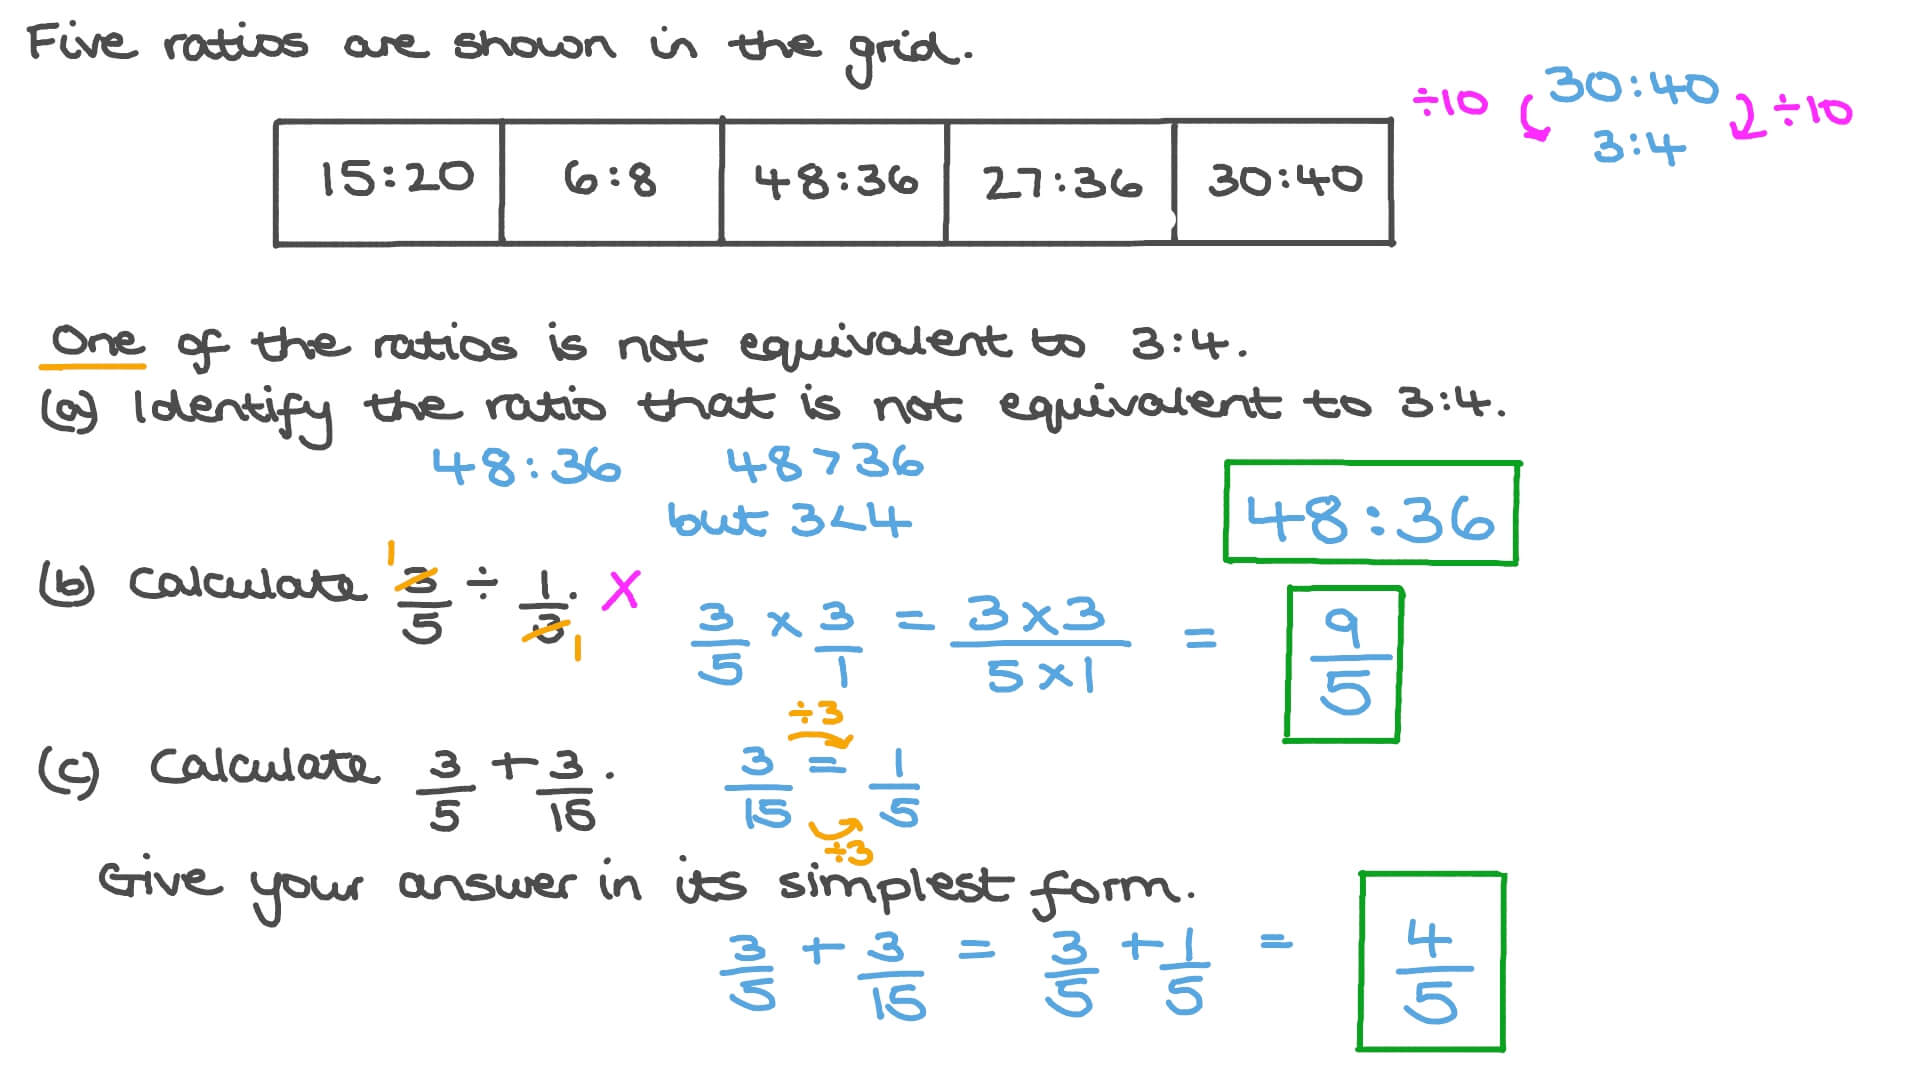 Five ratios are shown in the grid.
÷10 30:40 ÷10
3:4
15:20 6:8 48:36 27:36 30:40
One of the ratios is not equivalent to 3:4.
(a) Identify the ratio that is not equivalent to 3:4.
48:36 48>36
but 3<4
48:36
(b) Calculate 3/5 ÷ 1/3. 1 1 X
3/5 × 3/1 = 3×3/5×1 = 9/5
(c) Calculate 3/5 + 3/15.
÷3
3/15 = 1/5
÷3
Give your answer in its simplest form.
3/5 + 3/15 = 3/5 + 1/5 = 4/5